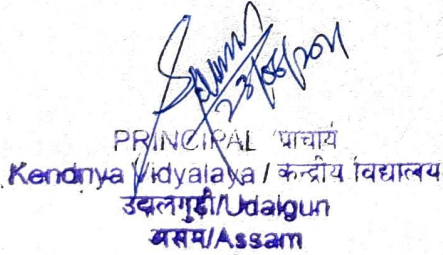 23/06/2011
PRINCIPAL प्राचार्य
Kendriya Vidyalaya / केन्द्रीय विद्यालय
उदालगुड़ी/Udalguri
असम/Assam